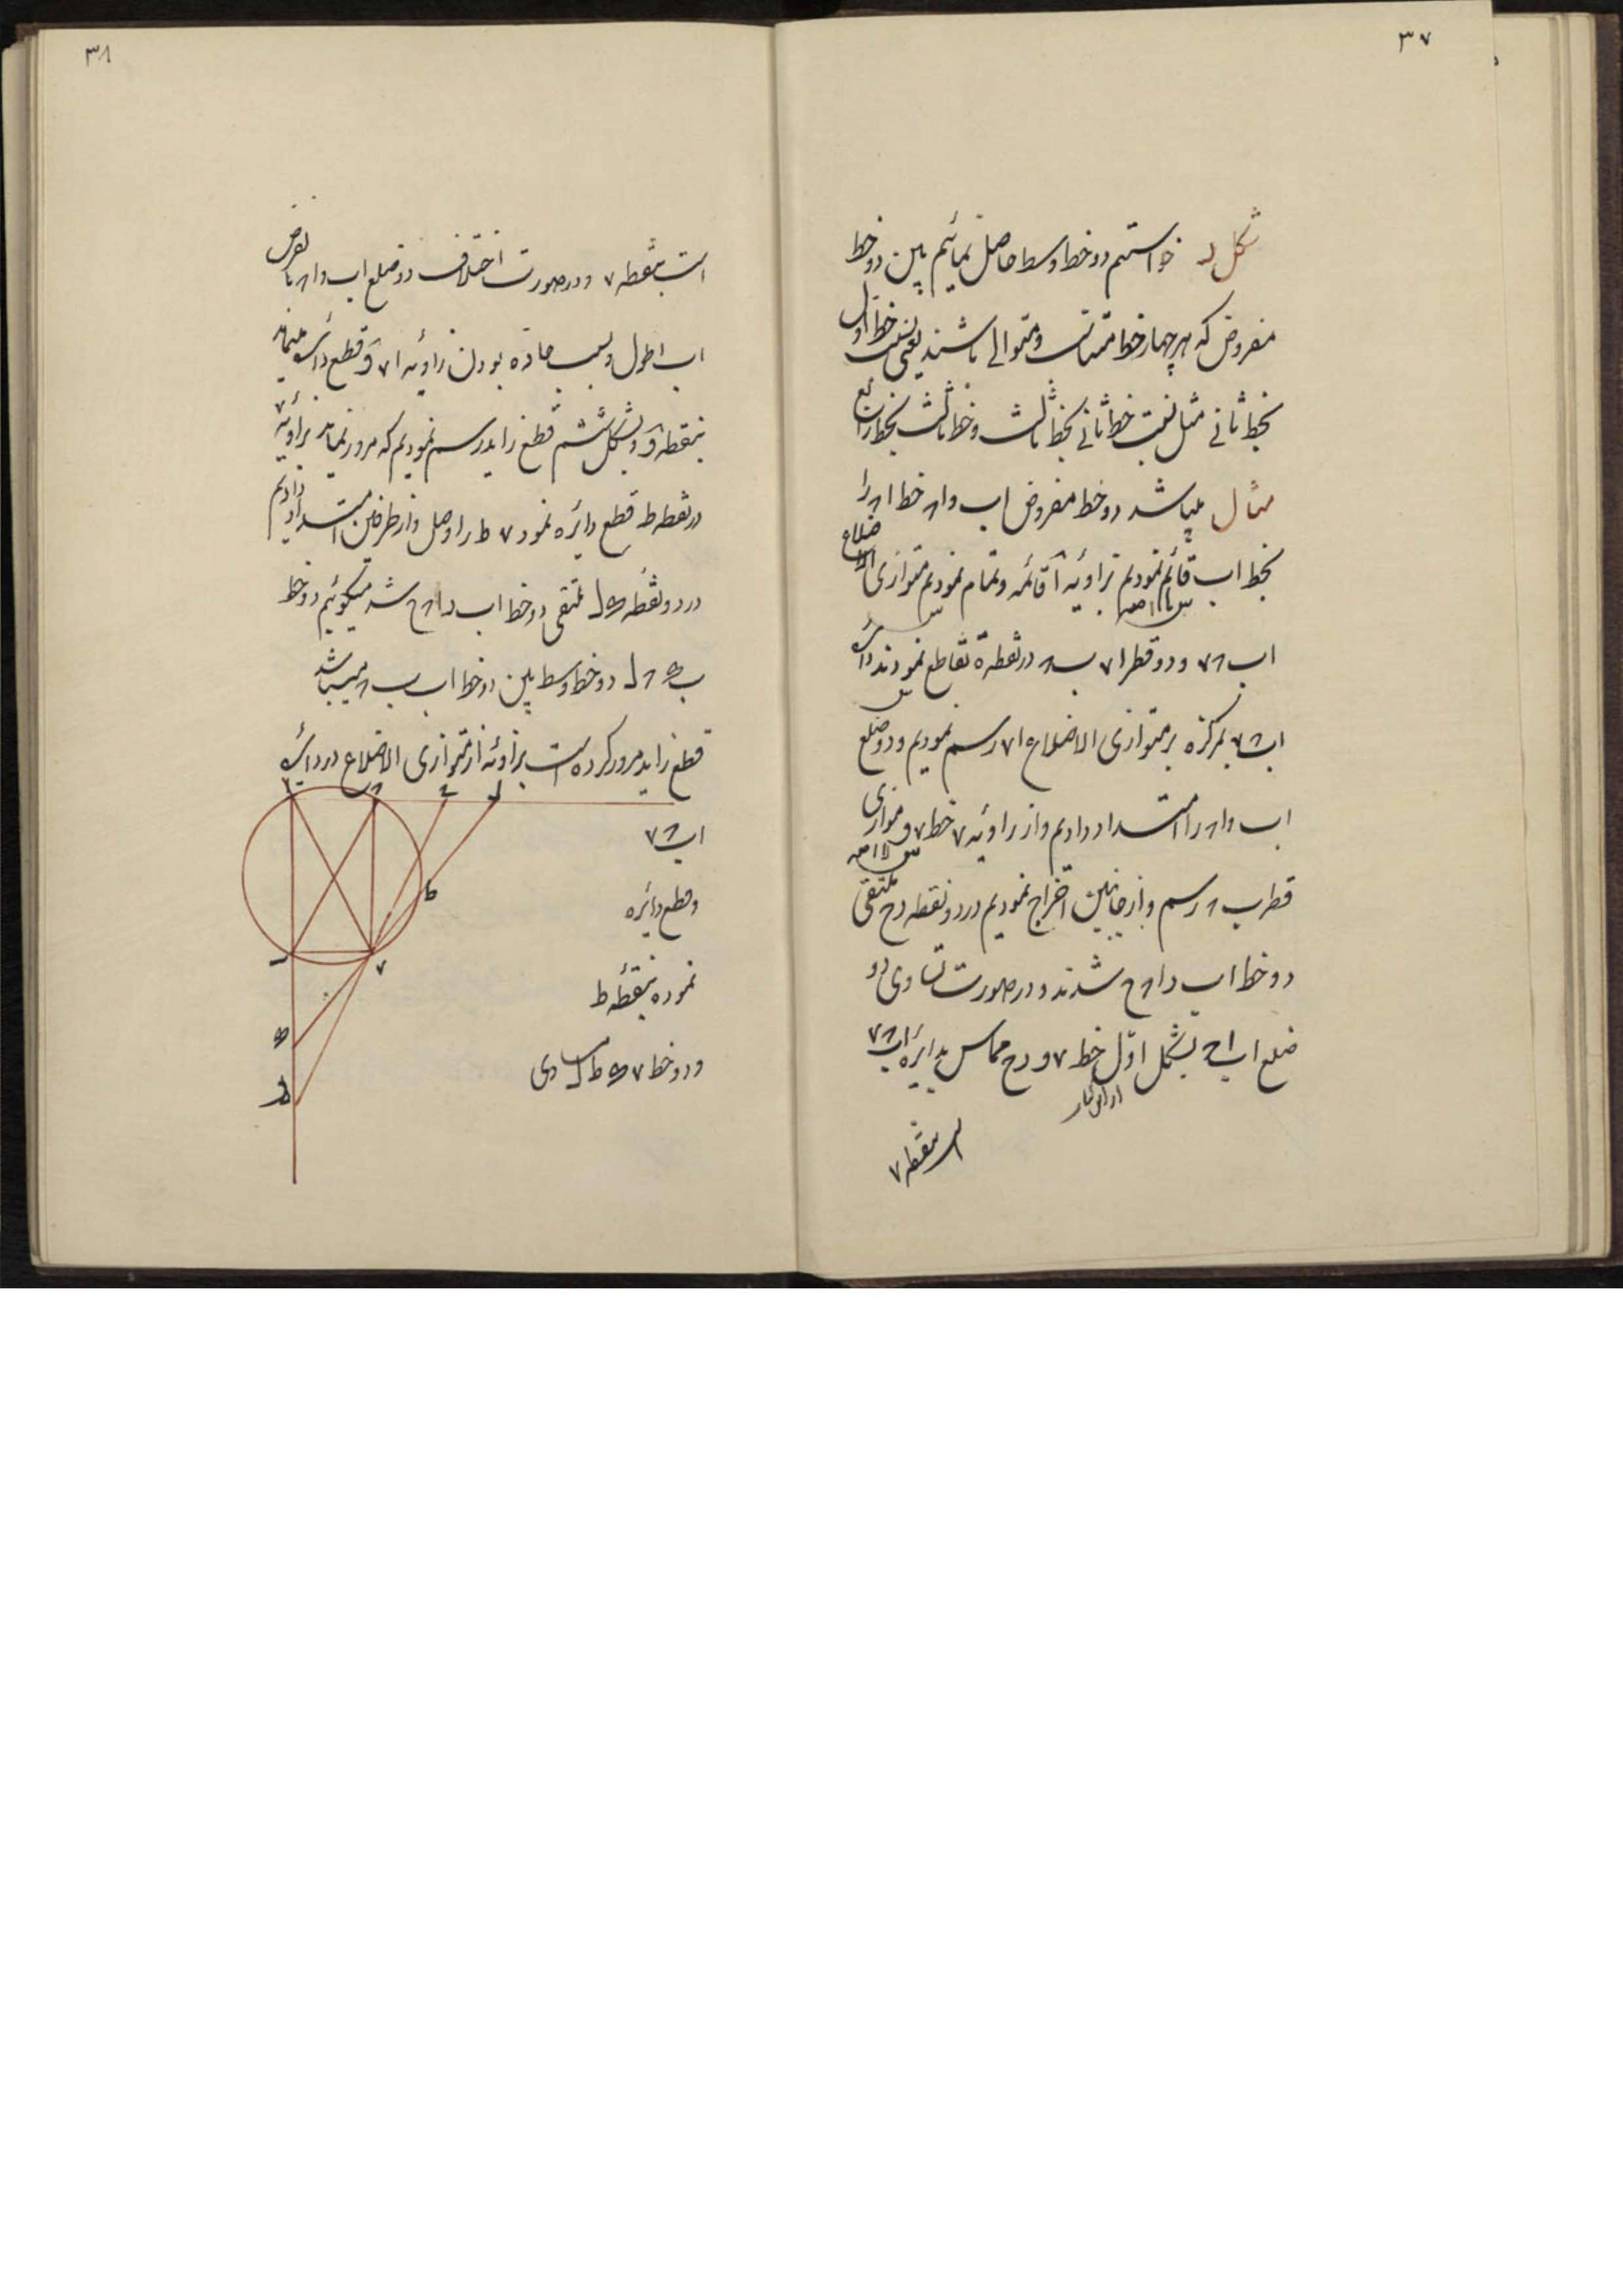 ۳۷
شکل د خواستیم دو خط وسط حاصل نمائیم بین دو خط
مفروض که هر چهار خط متناسب و متوالی باشند یعنی نسبت خط اول
بخط ثانی مثل نسبت خط ثانی بخط ثالث و خط ثالث بخط رابع
مثال میباشد دو خط مفروض اب و ا۸ خط ا۸ را
بخط اب قائم نمودیم بزاویه آ قائمه و تمام نمودیم متوازی الاضلاع
اب ۷۸ و دو قطر ا۷ ب۸ در نقطه ة تقاطع نمودند دائره
اب ۷۸ بمرکز ه بر متوازی الاضلاع ا۷ رسم نمودیم و دو ضلع
اب و ا۸ را امتداد دادیم و از زاویه ۷ خط ۷و موازی
قطر ب ۸ رسم و از جانبین اخراج نمودیم در دو نقطه دح ملتقی
دو خط اب د ا۸ح شدند و در صورت تساوی دو
ضلع اب اح بشکل اول خط ۷و دح مماس بدایره اب ۷۸
است بنقطه ۷
۳۸
است بنقطه ۷ و در صورت اختلاف دو ضلع اب و ا۸ با فرض
اب اطول و بسبب حاده بودن زاویه ا۷و قطع دائره مینماید
بنقطه و و بشکل ششم قطع زاید رسم نمودیم که مرور نماید بزاویه ۷
در نقطه ط قطع دائره نمود ۷ط را وصل و از طرفین امتداد دادیم
در دو نقطه ل ملتقی دو خط اب د ا۸ح شد میگوئیم دو خط
ب ۸ل دو خط وسط بین دو خط اب ب۸ میباشد
قطع زاید مرور کرده است بزاویه از متوازی الاضلاع در دائره
اب ۷۸
و قطع دائره
نموده بنقطه ط
و دو خط ۷ ط ل مساوی